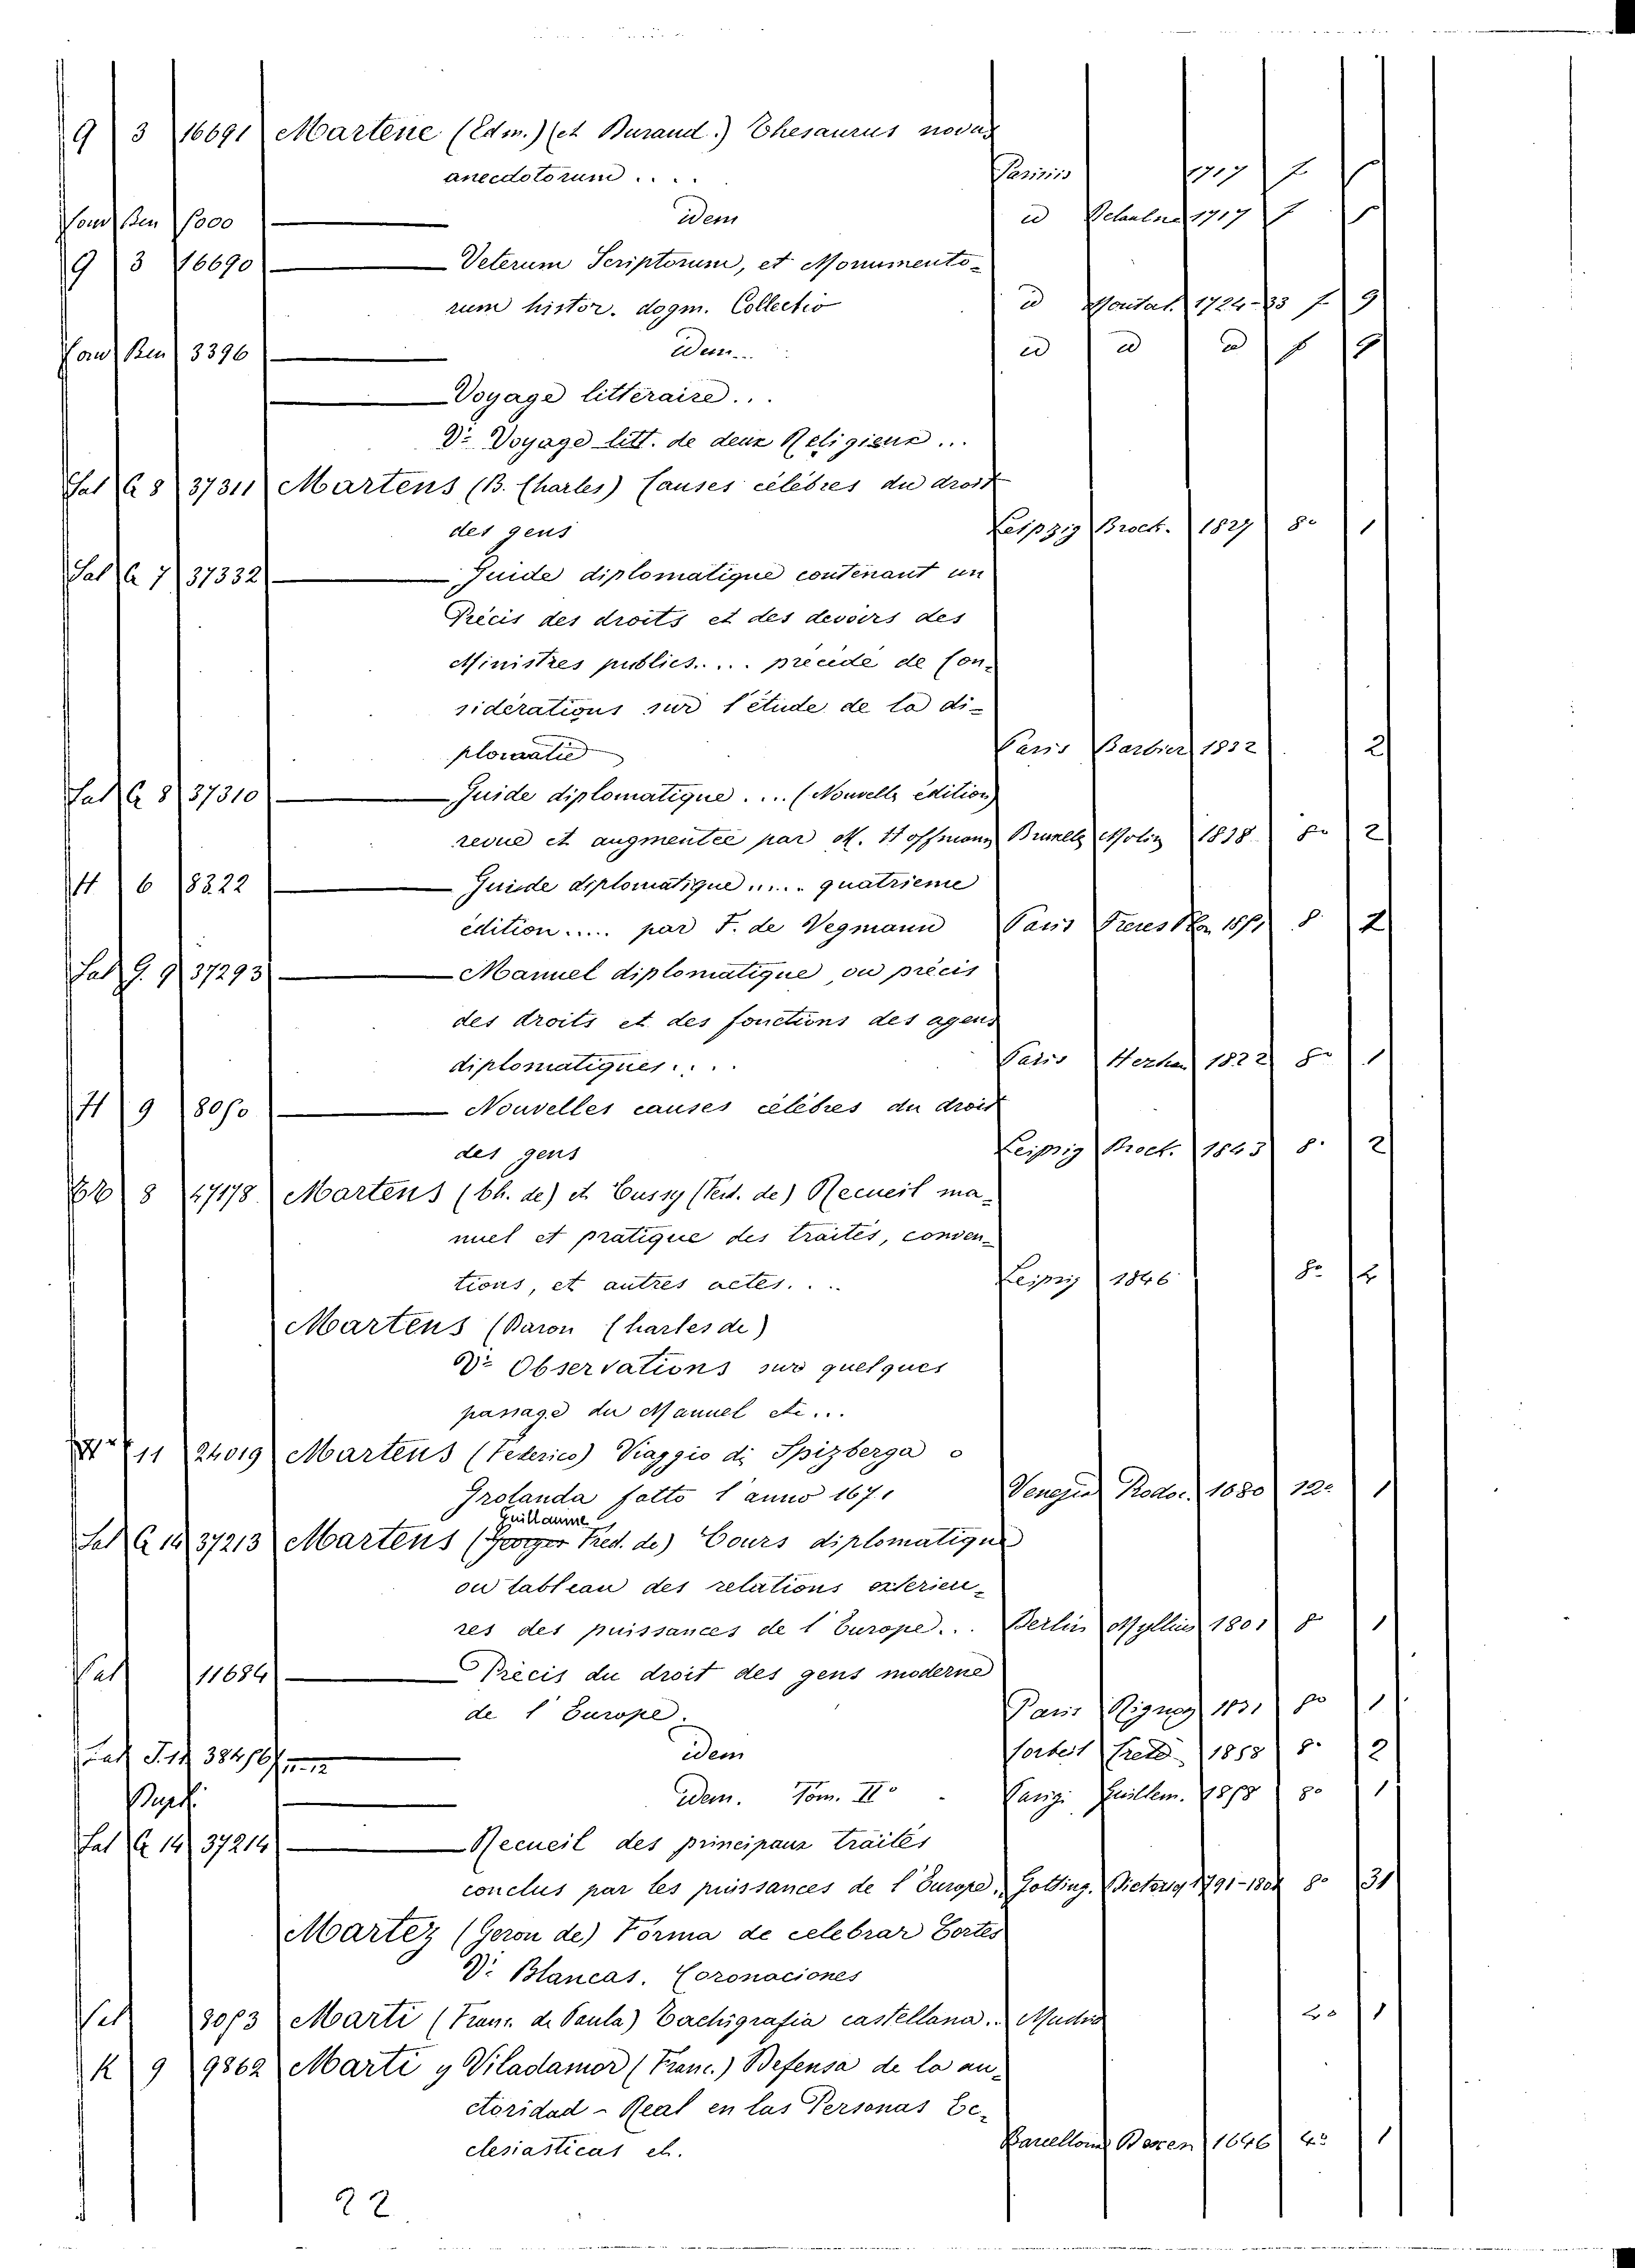 9 3 16691 Martene (Edm.) (et Durand.) Thesaurus novus
anecdotorum.... Parisiis 1717 f
idem id Delaulne 1717 f
9 3 16690 Veterum Scriptorum, et Monumento-
rum histor. dogm. Collectio id Montal. 1724-33 f 9
3396 idem... id id id f 9
Voyage littéraire...
V: Voyage litt. de deux Religieux...
Sal G 8 37311 Martens (B. Charles) Causes célèbres du droit
des gens Leipzig Brock. 1827 8º 1
Sal G 7 37332 Guide diplomatique contenant un
Précis des droits et des devoirs des
Ministres publics.... précédé de Con-
sidérations sur l'étude de la di-
plomatie Paris Barbier 1832 2
Sal G 8 37310 Guide diplomatique.... (Nouvelle édition)
revue et augmentée par M. Hoffmann Bruxelles 1838 8º 2
H 6 8322 Guide diplomatique..... quatrieme
édition..... par F. de Wegmann Paris 8º 2
Sal G. 9 37293 Manuel diplomatique, ou précis
des droits et des fonctions des agens
diplomatiques.... Paris Herhan 1822 8º 1
H 9 8050 Nouvelles causes célèbres du droit
des gens Leipzig Brock. 1843 8º 2
8 47178 Martens (Ch. de) et Cussy (Ferd. de) Recueil ma-
nuel et pratique des traités, conven-
tions, et autres actes.... Leipzig 1846 8º
Martens (Baron Charles de)
V: Observations sur quelques
passage du Manuel etc...
11 24019 Martens (Federico) Viaggio di Spizberga o
Grolanda fatto l'anno 1671 Venezia 1680 12º 1
Guillaume
Sal G 14 37213 Martens (Georges Fred. de) Cours diplomatique
ou tableau des relations exterieu-
res des puissances de l'Europe... Berlin Mylius 1801 8º 1
Sal 11684 Précis du droit des gens moderne
de l'Europe. Paris 1831 8º 1
Sal J. 14 idem 1858 8º 2
idem. Tom. IIº Parigi Guillem. 1858 8º 1
Sal G 14 37214 Recueil des principaux traités
conclus par les puissances de l'Europe. Gotting. 8º
Martez (Geron de) Forma de celebrar Cortes
V: Blancas. Coronaciones
3053 Marti (Franc. de Paula) Tachigrafia castellana.. 1
K 9 9862 Marti y Viladamor (Franc.) Defensa de la au-
ctoridad-Real en las Personas Ec-
clesiasticas et. 1646 4º 1
22